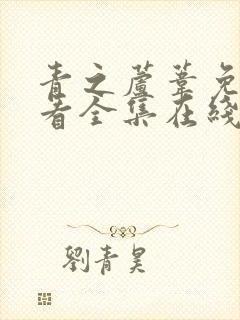 青之蘆葦免
看全集在綫
劉青昊